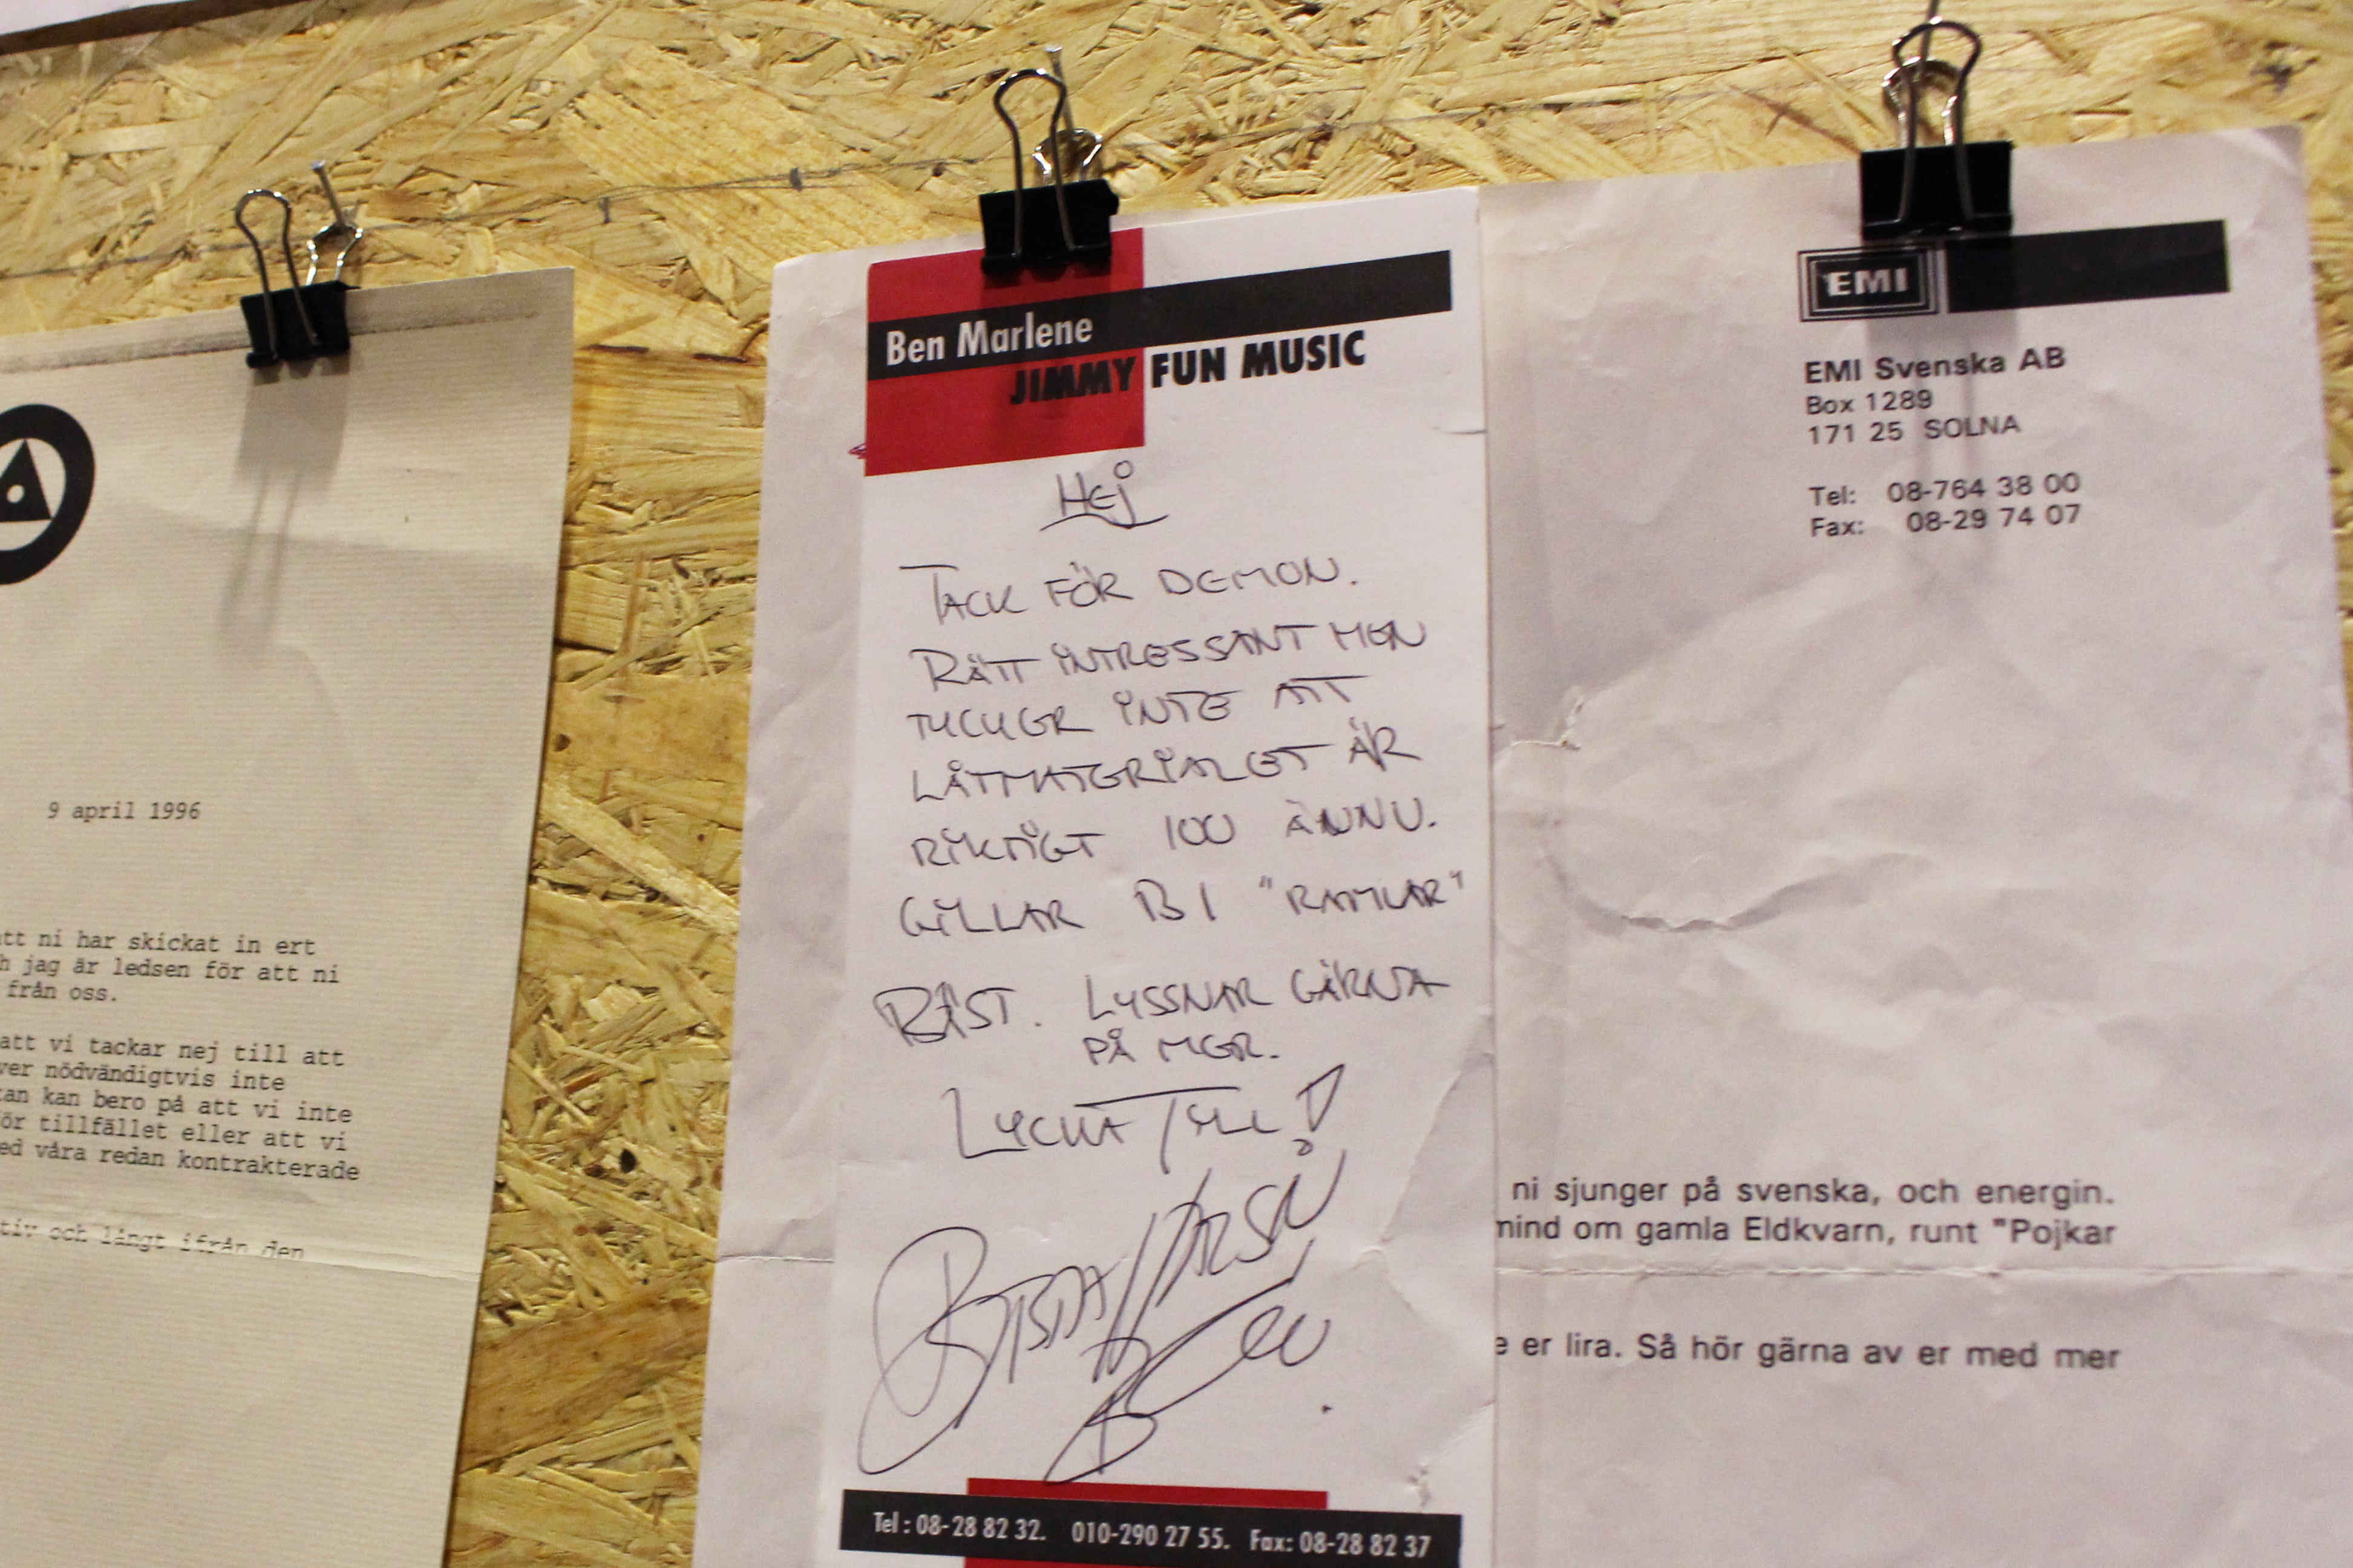 9 april 1996
att ni har skickat in ert
h jag är ledsen för att ni
från oss.
att vi tackar nej till att
ver nödvändigtvis inte
tan kan bero på att vi inte
ör tillfället eller att vi
ed våra redan kontrakterade
tiv och långt ifrån den
Ben Marlene
JIMMY FUN MUSIC
HEJ
TACK FÖR DEMON.
RÄTT INTRESSANT MEN
TYCKER INTE ATT
LÅTMATERIALET ÄR
RIKTIGT 100 ÄNNU.
GILLAR B1 "RAMLAR"
BÄST. LYSSNAR GÄRNA
PÅ MER.
LYCKA TILL!
Tel : 08-28 82 32. 010-290 27 55. Fax: 08-28 82 37
EMI
EMI Svenska AB
Box 1289
171 25 SOLNA
Tel: 08-764 38 00
Fax: 08-29 74 07
ni sjunger på svenska, och energin.
mind om gamla Eldkvarn, runt "Pojkar
e er lira. Så hör gärna av er med mer